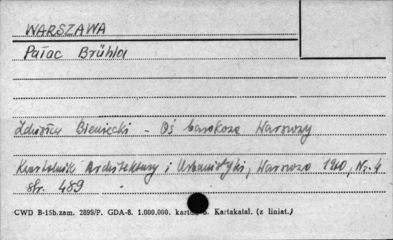 WARSZAWA
Pałac Brühla
Zdzisław Bieniecki - Oś barokowa Warszawy
Kwartalnik Architektury i Urbanistyki, Warszawa 1960, Nr. 4
str. 489
CWD B-15b.zam. 2899/P. GDA-8. 1.000.000. karton. Kartakatal. (z liniat.)